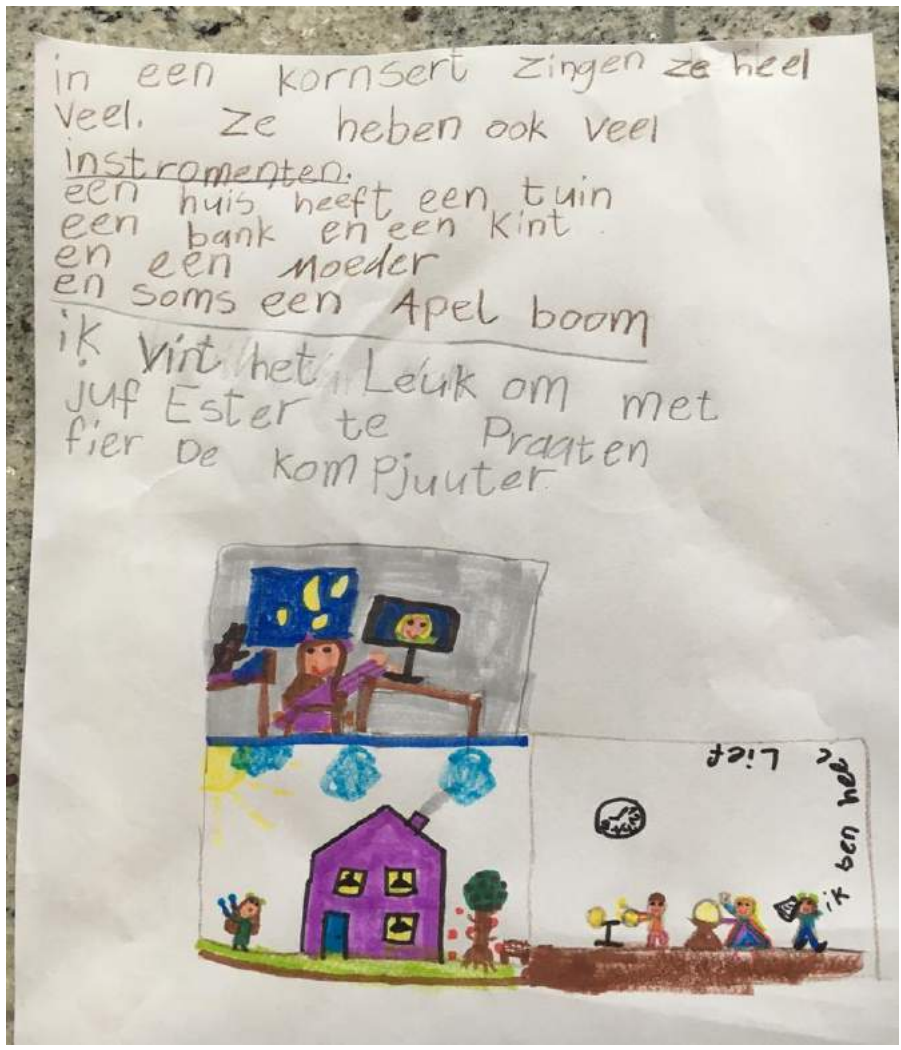 in een kornsert zingen ze heel
veel. ze heben ook veel
instromenten.
een huis heeft een tuin
een bank en een kint.
en een moeder
en soms een Apel boom
ik vint het Leuk om met
juf Ester te Praaten
fier De kompjuuter
ik ben heel Lief